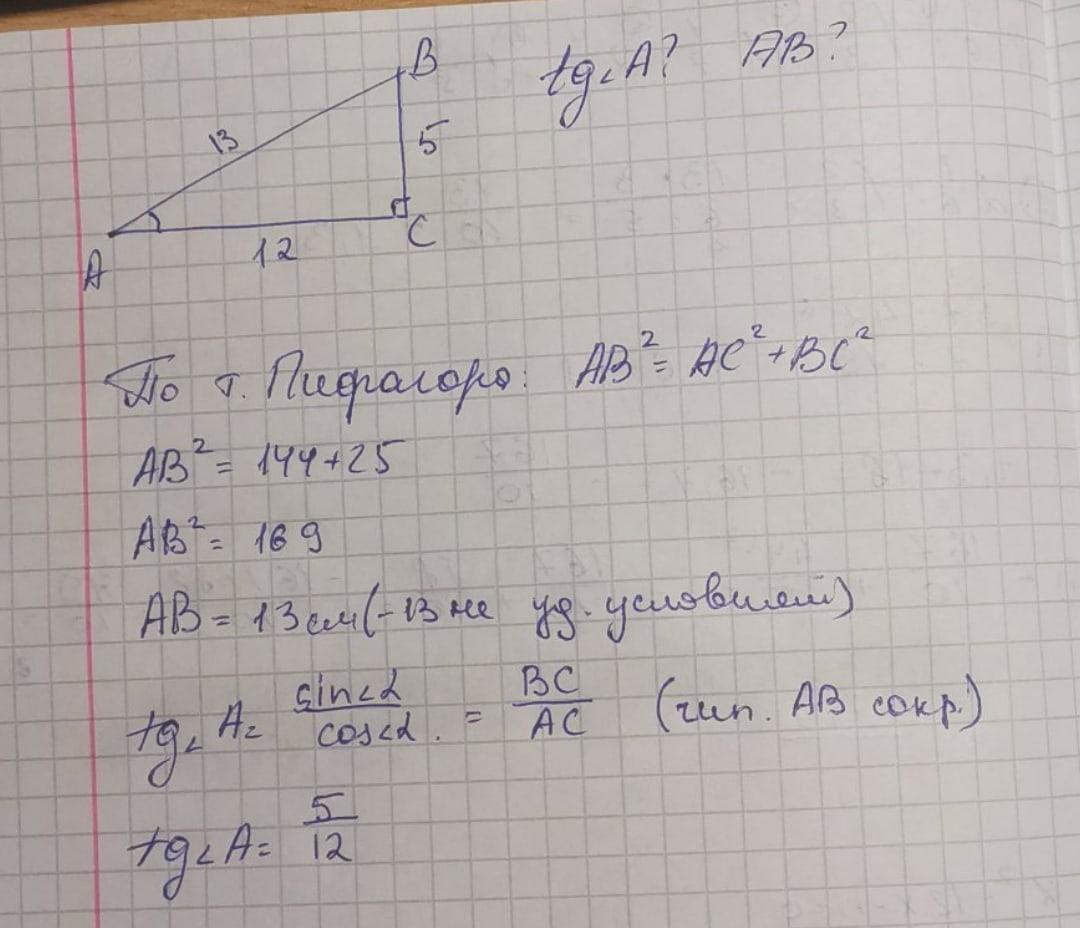 tg∠A? AB?
B
13
5
A
12
C
По т. Пифагора: AB²= AC²+BC²
AB²= 144+25
AB²= 169
AB= 13см(-13 не уд. условием)
tg∠A= sin∠α/cos∠α. = BC/AC (гип. AB сокр.)
tg∠A= 5/12